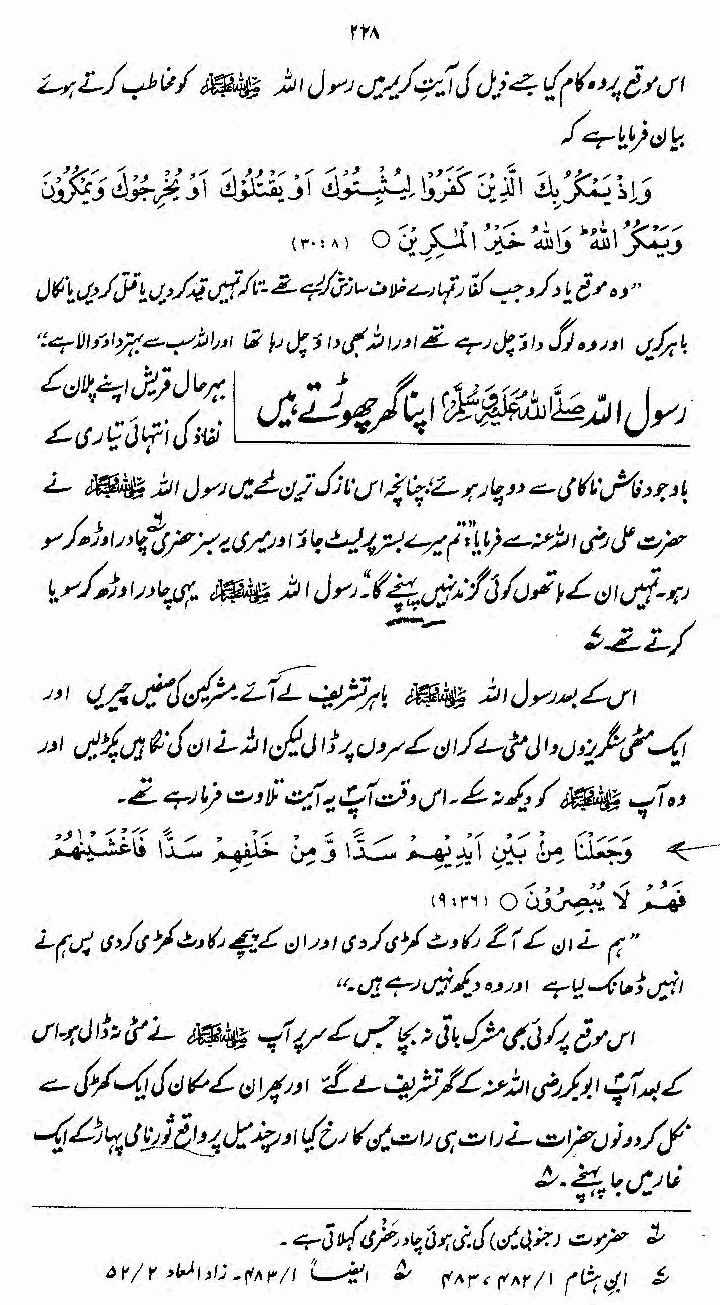 ۲۲۸
اس موقع پر وہ کام کیا جسے ذیل کی آیتِ کریمہ میں رسول اللہ ﷺ کو مخاطب کرتے ہوئے
بیان فرمایا ہے کہ
وَاِذْ يَمْكُرُ بِكَ الَّذِيْنَ كَفَرُوْا لِيُثْبِتُوْكَ اَوْ يَقْتُلُوْكَ اَوْ يُخْرِجُوْكَ وَيَمْكُرُوْنَ
وَيَمْكُرُ اللّٰهُ ؕ وَاللّٰهُ خَيْرُ الْمٰكِرِيْنَ ○ (۳۰:۸)
”وہ موقع یاد کرو جب کفّار تمہارے خلاف سازش کر رہے تھے۔ تاکہ تمہیں قید کردیں یا قتل کردیں یا نکال
باہر کریں اور وہ لوگ داؤ چل رہے تھے اور اللہ بھی داؤ چل رہا تھا اور اللہ سب سے بہتر داؤ والا ہے۔“
رسول اللہ صَلَّی اللهُ عَلَیْهِ وَسَلَّمَ اپنا گھر چھوڑتے ہیں
بہرحال قریش اپنے پلان کے
نفاذ کی انتہائی تیاری کے
باوجود فاش ناکامی سے دوچار ہوئے؛ چنانچہ اس نازک ترین لمحے میں رسول اللہ ﷺ نے
حضرت علی رضی اللہ عنہ سے فرمایا: ”تم میرے بستر پر لیٹ جاؤ اور میری یہ سبز حضرمی۶ چادر اوڑھ کر سو
رہو۔ تمہیں ان کے ہاتھوں کوئی گزند نہیں پہنچے گا“۔ رسول اللہ ﷺ یہی چادر اوڑھ کر سویا
کرتے تھے۔۷
اس کے بعد رسول اللہ ﷺ باہر تشریف لے آئے۔ مشرکین کی صفیں چیریں اور
ایک مٹھی سنگریزوں والی مٹی لے کر ان کے سروں پر ڈالی لیکن اللہ نے ان کی نگاہیں پکڑ لیں اور
وہ آپ ﷺ کو دیکھ نہ سکے۔ اس وقت آپؐ یہ آیت تلاوت فرما رہے تھے۔
وَجَعَلْنَا مِنْۢ بَيْنِ اَيْدِيْهِمْ سَدًّا وَّمِنْ خَلْفِهِمْ سَدًّا فَاَغْشَيْنٰهُمْ
فَهُمْ لَا يُبْصِرُوْنَ ○ (۹:۳۶)
”ہم نے ان کے آگے رکاوٹ کھڑی کردی اور ان کے پیچھے رکاوٹ کھڑی کردی پس ہم نے
انہیں ڈھانک لیا ہے اور وہ دیکھ نہیں رہے ہیں۔“
اس موقع پر کوئی بھی مشرک باقی نہ بچا جس کے سر پر آپ ﷺ نے مٹی نہ ڈالی ہو۔ اس
کے بعد آپؐ ابوبکر رضی اللہ عنہ کے گھر تشریف لے گئے اور پھر ان کے مکان کی ایک کھڑکی سے
نکل کر دونوں حضرات نے رات ہی رات یمن کا رخ کیا اور چند میل پر واقع ثور نامی پہاڑ کے ایک
غار میں جا پہنچے۔۸
۶ حضرموت (جنوبی یمن) کی بنی ہوئی چادر حَضْرَمی کہلاتی ہے۔
۷ ابن ہشام ۱/۴۸۲، ۴۸۳ ۸ ایضاً ۱/۴۸۳۔ زاد المعاد ۲/۵۲